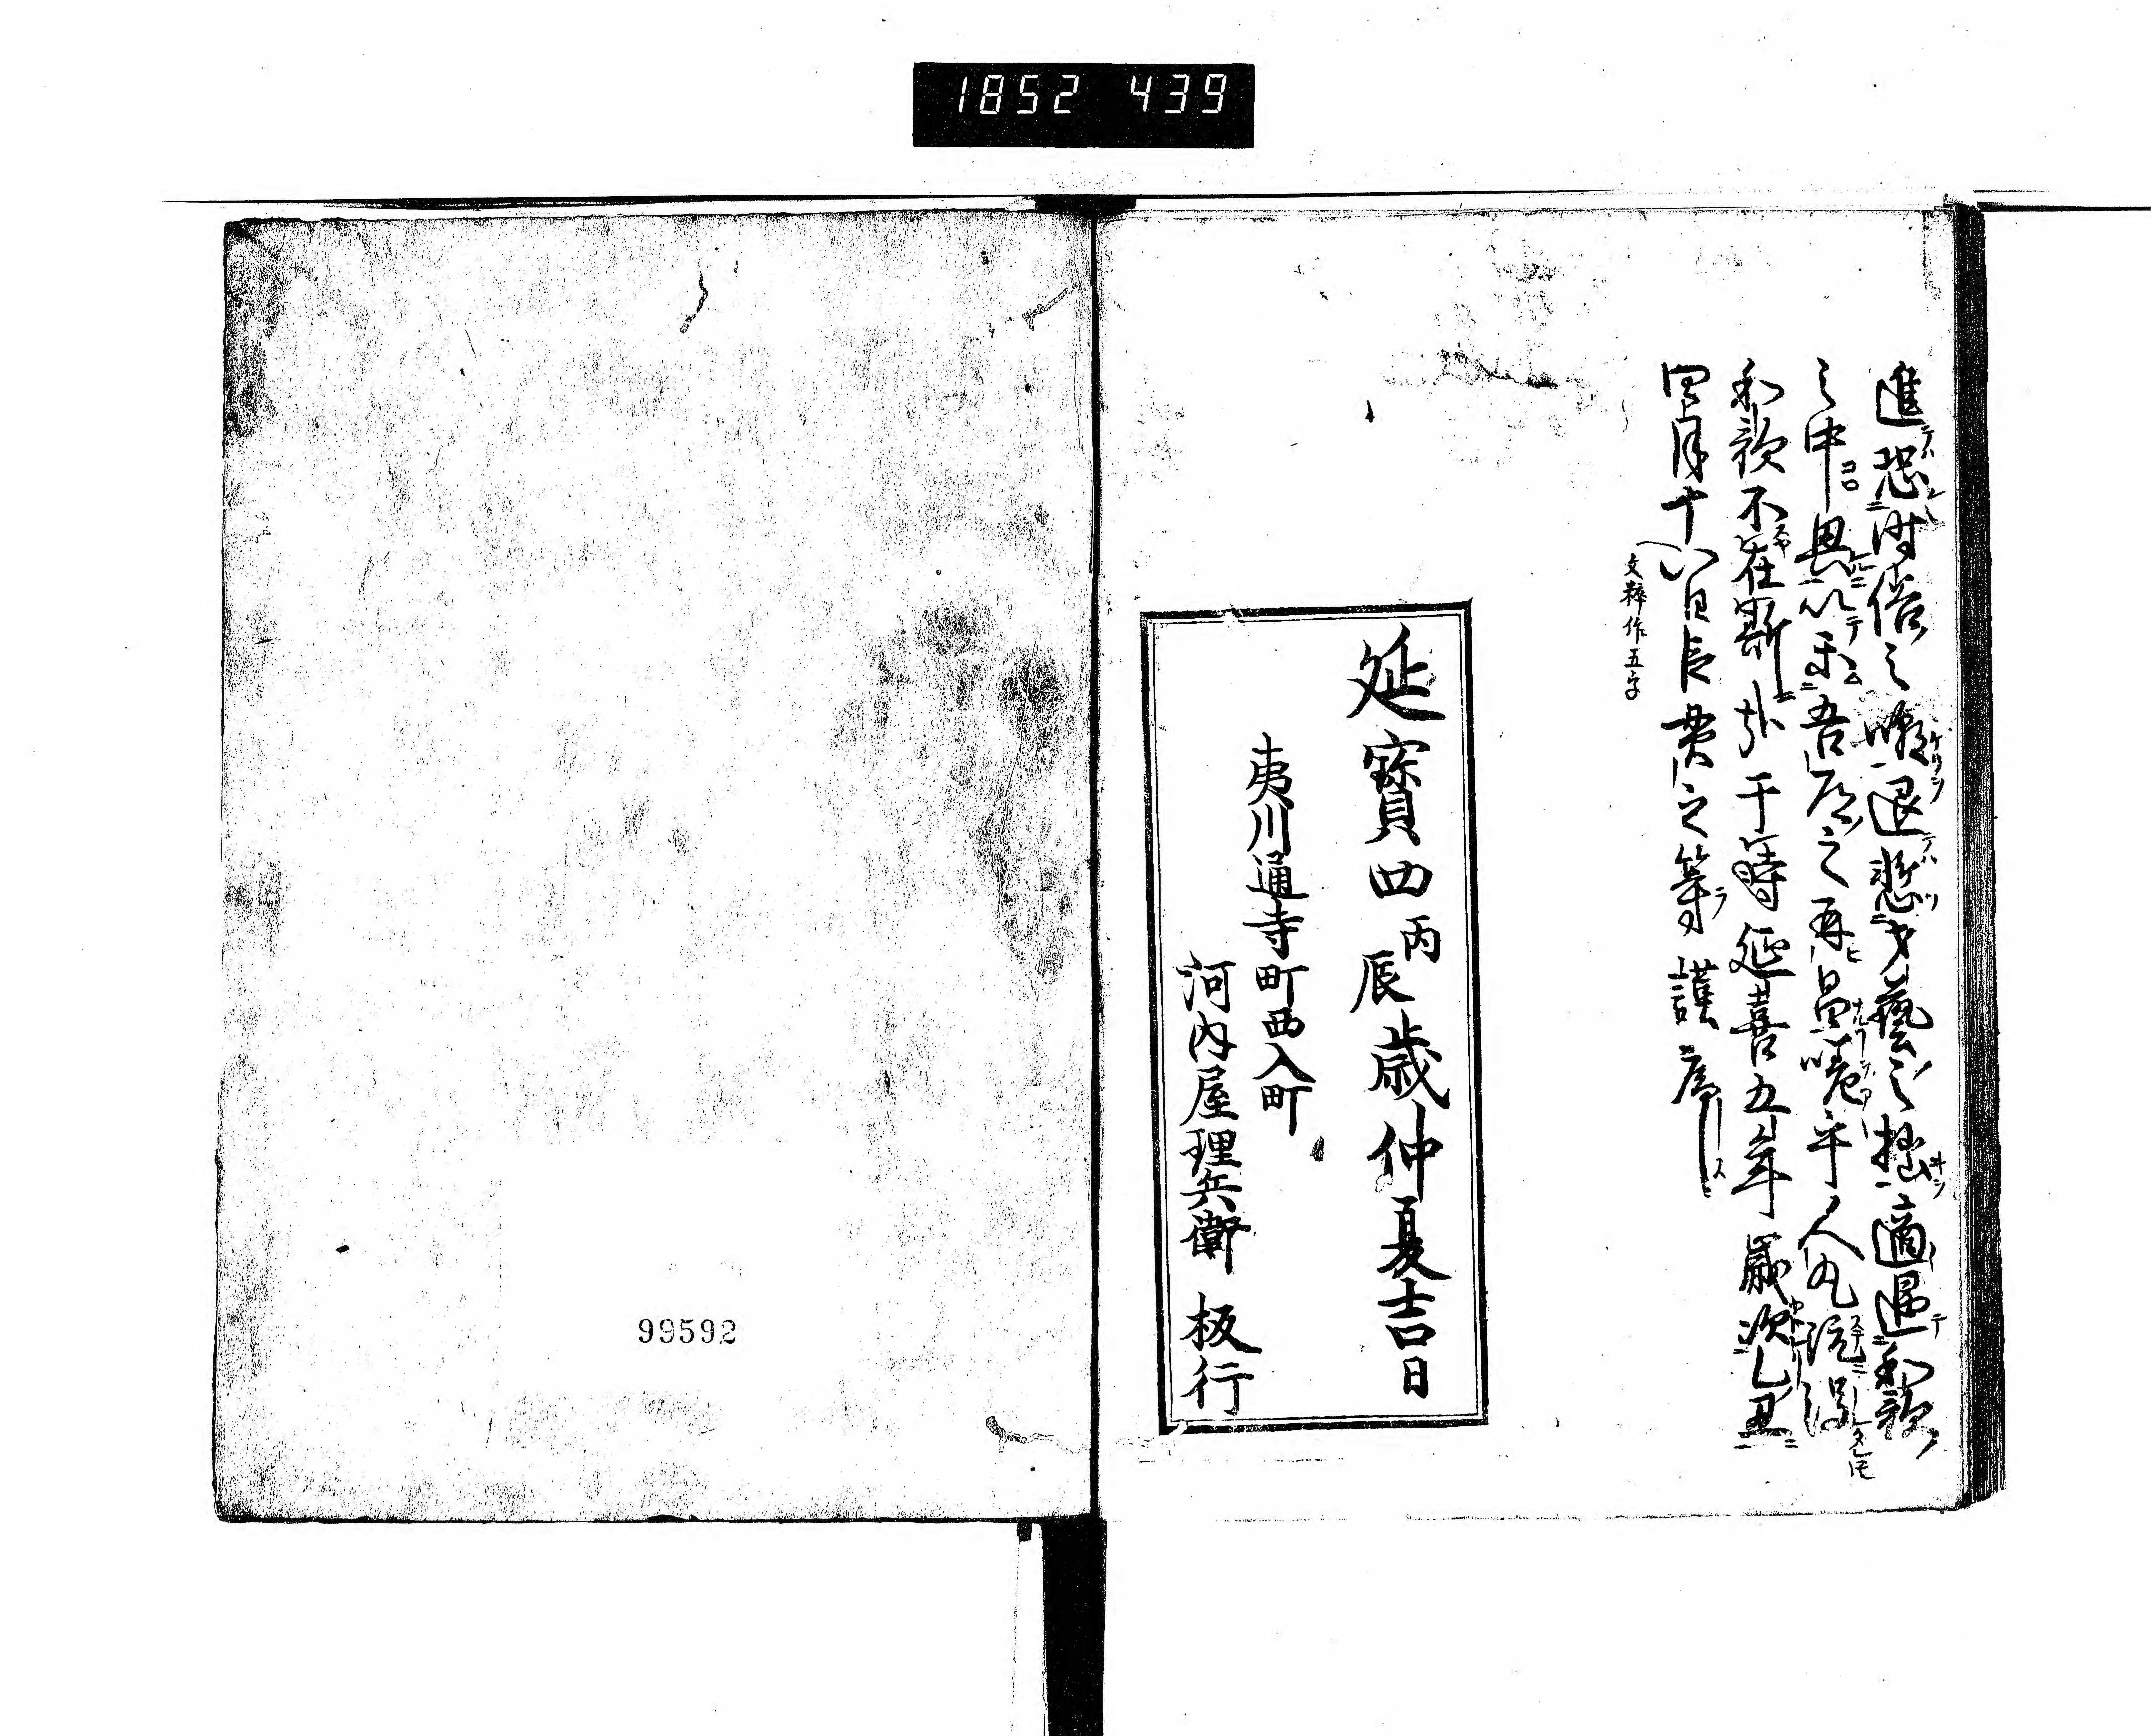 1852 439
進恐時俗之嘲退慙才藝之拙適遇和歌
之中興以樂吾道之再昌嗟乎人丸既沒
和歌不在斯哉于時延喜五年歳次乙丑
四月十八日臣貫之等謹序
文粹作五字
延寳四丙辰歳仲夏吉日
夷川通寺町西入町
河内屋理兵衛 板行
99592